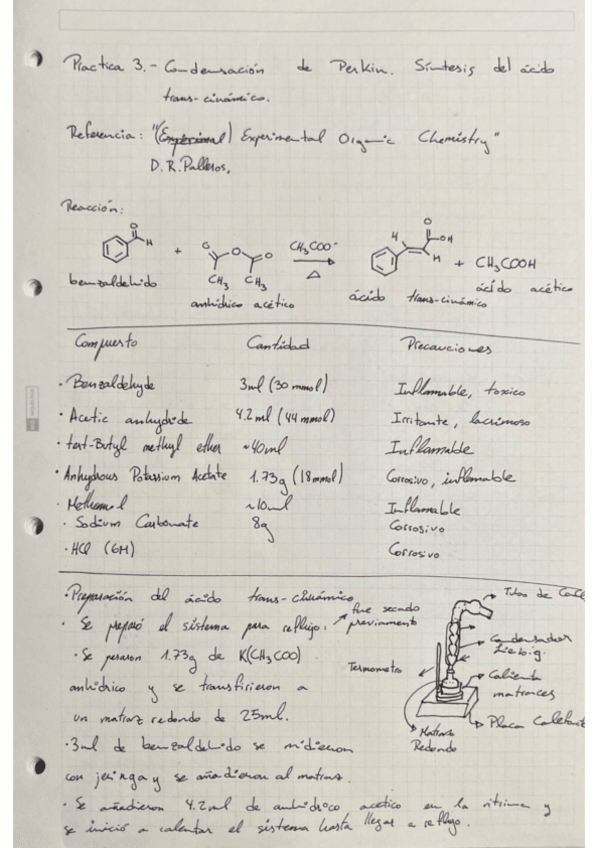 Practica 3.- Condensación de Perkin. Síntesis del ácido
trans-cinámico.
Referencia: "(Experimenal) Experimental Organic Chemistry"
D.R. Palleros,
Reacción:
CH₃COO⁻
Δ
CH₃ CH₃
+ CH₃COOH
benzaldehido
anhídrico acético
ácido trans-cinámico
ácido acético
Compuesto Cantidad Precauciones
· Benzaldehyde 3ml (30 mmol) Inflamable, toxico
· Acetic anhydride 4.2 ml (44 mmol) Irritante, lacrimoso
· tert-Butyl methyl ether ~40ml Inflamable
· Anhydrous Potassium Acetate 1.73g (18 mmol) Corrosivo, inflamable
· Methanol ~10ml Inflamable
· Sodium Carbonate 8g Corrosivo
· HCl (6M) Corrosivo
· Preparación del ácido trans-cinámico
· Se preparó el sistema para reflujo. fue secado
previamente
· Se pesaron 1.73g de K(CH₃COO)
anhídrico y se transfirieron a
un matraz redondo de 25ml.
· 3ml de benzaldehido se midieron
con jeringa y se añadieron al matraz.
· Se añadieron 4.2ml de anhídrico acetico en la vitrina y
se inició a calentar el sistema hasta llegar a reflujo.
Tubo de
Condensador
Liebig.
Termometro
Calienta
matraces
Placa
Matraz
Redondo